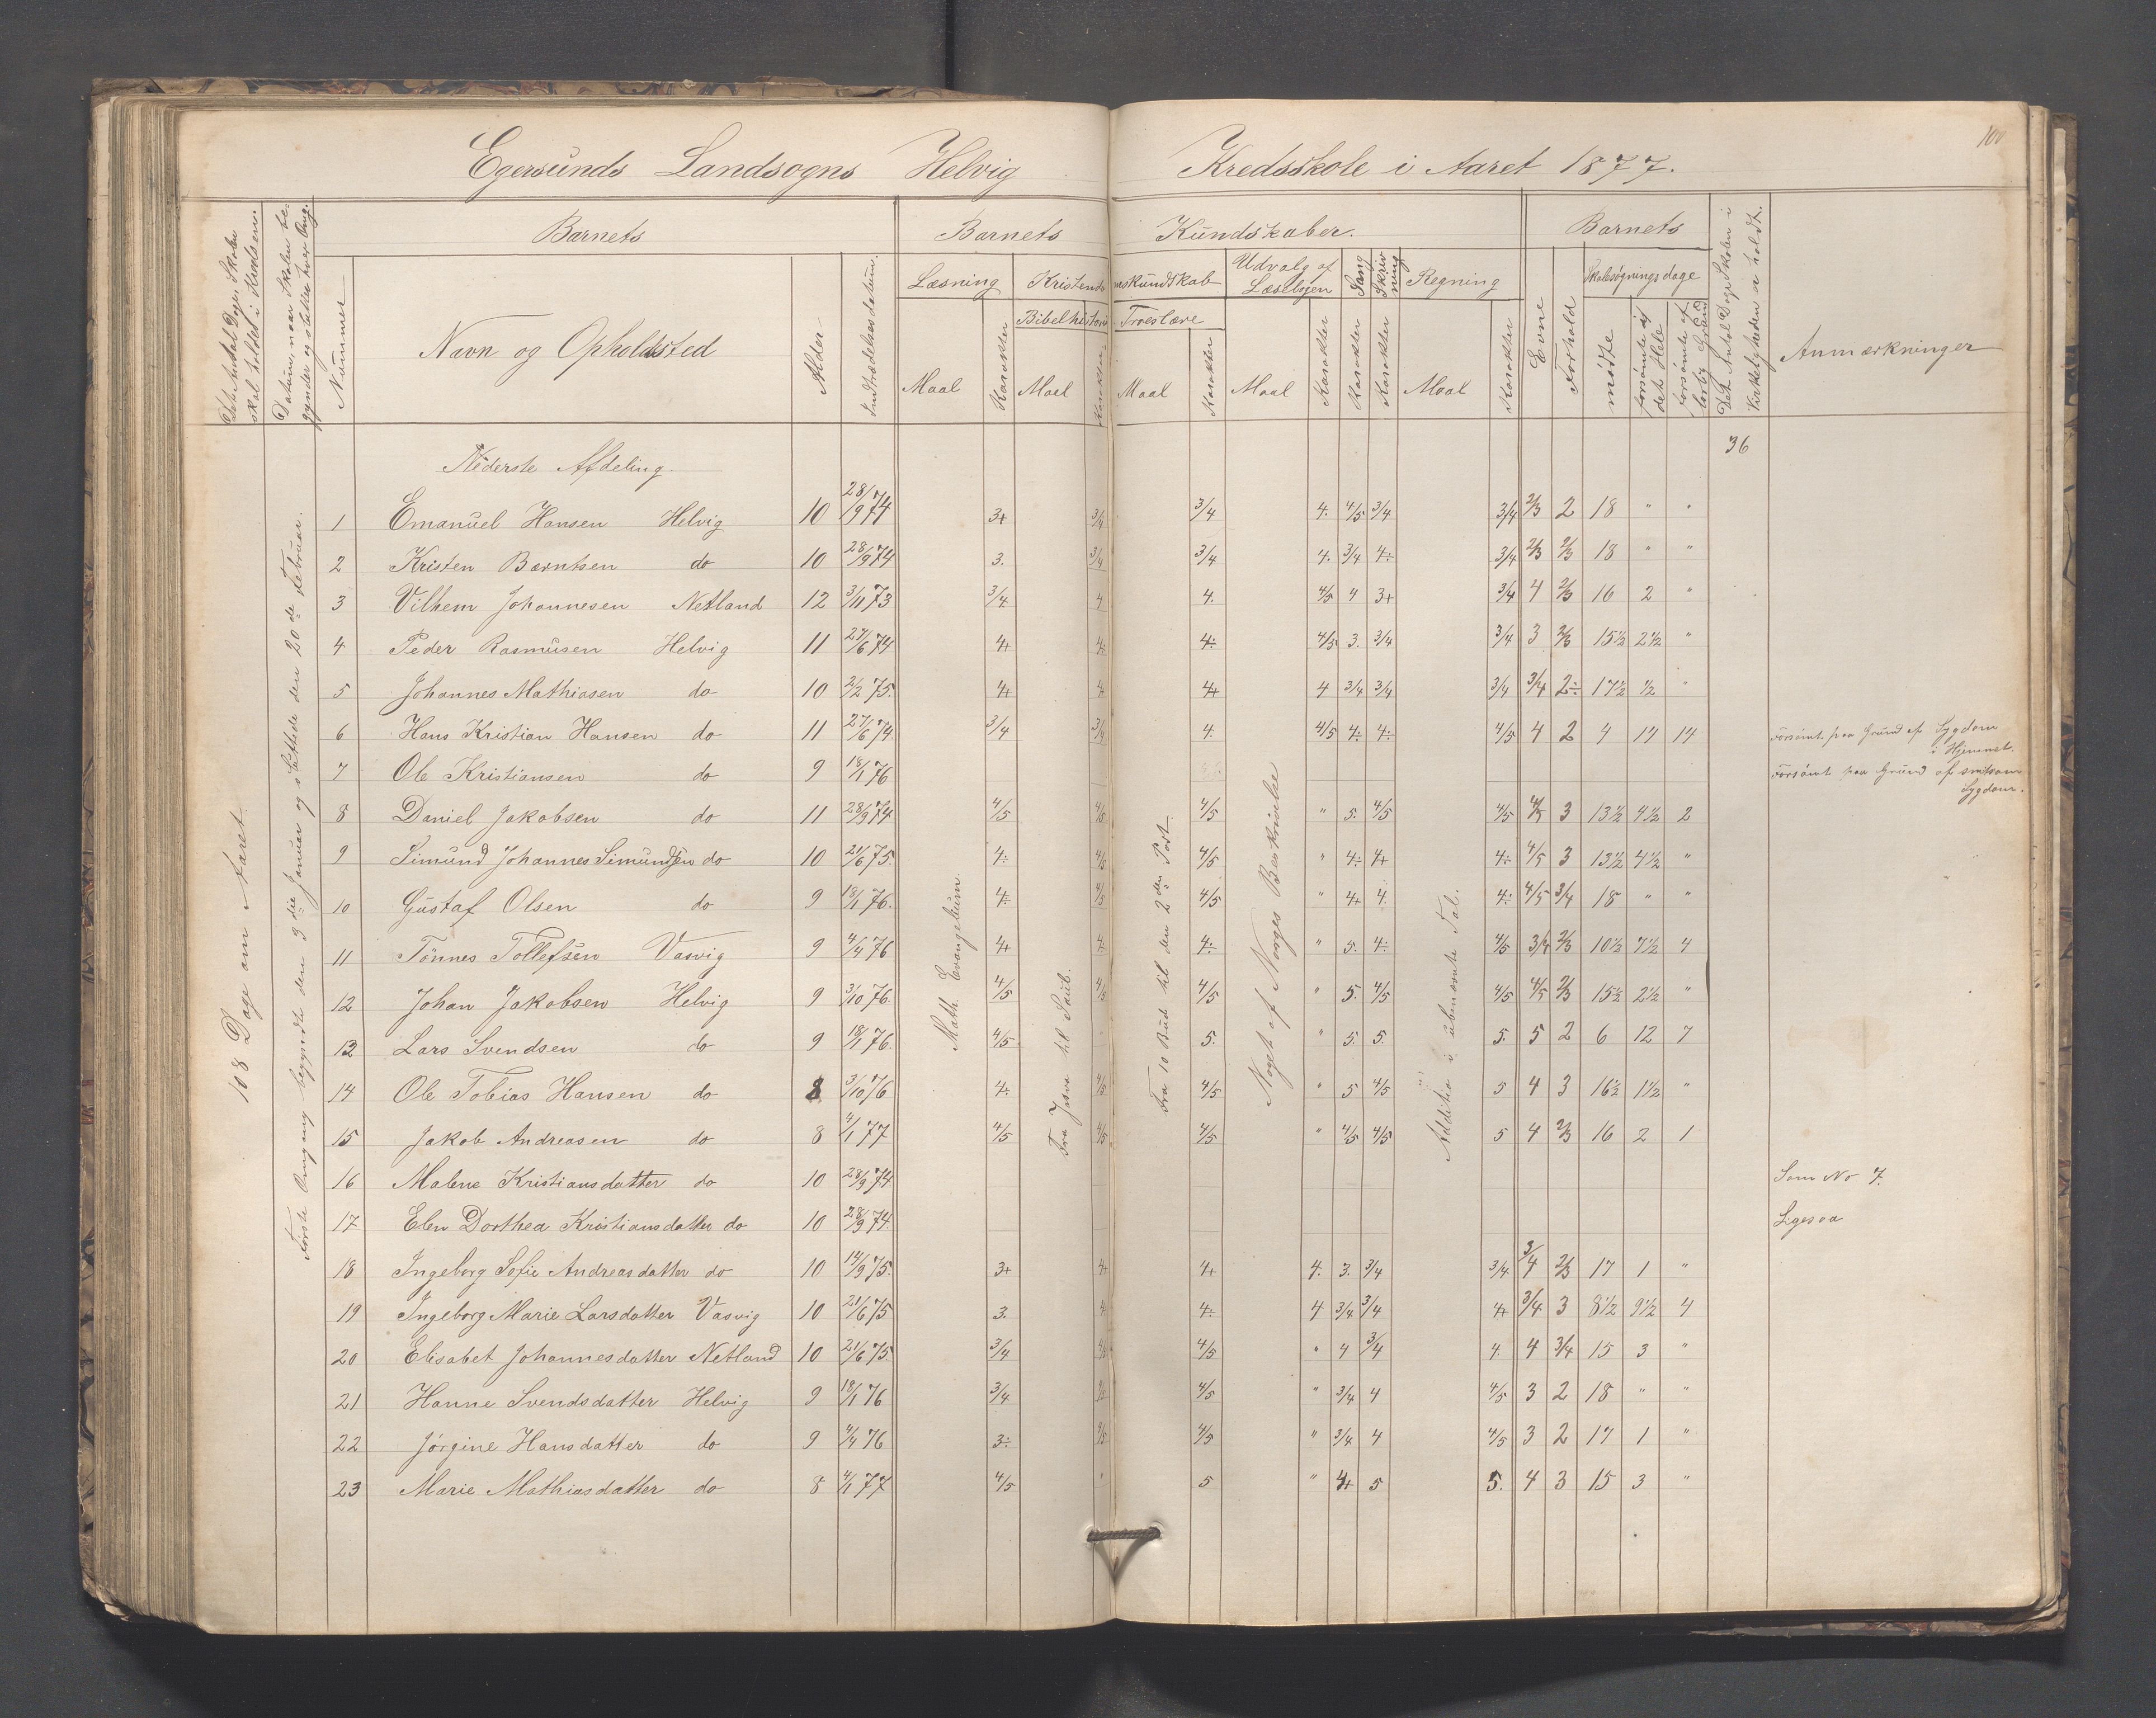 100
Egersunds Landsogns Helvig Kredsskole i Aaret 1877.
Det Antal Dage Skolen skal holdes i Kredsen.
Datum, naar Skolen begynder og slutter hver Omg.
Nummer
Barnets
Navn og Opholdssted
Alder
Indtrædelsesdatum.
Barnets Kundskaber.
Læsning
Maal
Karakter
Kristendomskundskab
Bibelhistorie
Maal
Karakter
Troeslære
Maal
Karakter
Udvalg af Læsebogen
Maal
Karakter
Sang
Karakter
Skrivning
Karakter
Regning
Maal
Karakter
Barnets
Evne
Forhold
Skolesøgningsdage
mødte
forsømte af det Hele
forsømte af lovlig Grund
Det Antal Dage Skolen i Virkeligheden er holdt.
Anmærkninger
108 Dage om Aaret
Første Omgang begyndte den 3die Januar og sluttede den 20de Februar.
Math. Evangelium.
Fra Josva til Saul.
Fra 10 Bud til den 2den Part.
Noget af Norges Beskrivelse
Addition i ubenævnte Tal.
Nederste Afdeling. 36
1 Emanuel Hansen Helvig 10 28/9 74 3+ 3/4 3/4 4. 4/5 3/4 3/4 2/3 2 18 " "
2 Kristen Berntsen do 10 28/9 74 3. 3/4 3/4 4. 3/4 4÷ 3/4 2/3 2/3 18 " "
3 Vilhem Johannesen Netland 12 3/11 73 3/4 4 4. 4/5 4 3+ 3/4 4 2/3 16 2 "
4 Peder Rasmusen Helvig 11 27/6 74 4+ 4÷ 4÷ 4/5 3. 3/4 3/4 3 2/3 15½ 2½ "
5 Johannes Mathiasen do 10 2/2 75. 4+ 4 4+ 4 3/4 3/4 3/4 3/4 2÷ 17½ ½ "
6 Hans Kristian Hansen do 11 27/6 74 3/4 3/4 4. 4/5 4÷ 4÷ 4/5 4 2 4 14 14 Forsømt paa Grund af Sygdom
i Hjemmet.
7 Ole Kristiansen do 9 18/1 76 Forsømt paa Grund af smitsom
Sygdom.
8 Daniel Jakobsen do 11 28/9 74 4/5 4/5 4/5 " 5. 4/5 4/5 4/5 3 13½ 4½ 2
9 Simund Johannes Simundsen do 10 21/6 75. 4÷ 4/5 4/5 " 4÷ 4+ 4÷ 4/5 3 13½ 4½ "
10 Gustaf Olsen do 9 18/1 76. 4÷ 4/5 4/5 " 4+ 4. 4÷ 4/5 3/4 18 " "
11 Tønnes Tollefsen Vasvig 9 4/4 76 4+ 4÷ 4÷ " 5. 4÷ 4/5 3/4 2/3 10½ 7½ 4
12 Johan Jakobsen Helvig 9 3/10 76. 4/5 4/5 4/5 " 5. 4/5 4/5 4/5 2/3 15½ 2½ "
13 Lars Svendsen do 9 18/1 76. 4/5 " 5. " 5. 5. 5. 5 2 6 12 7
14 Ole Tobias Hansen do 8 3/10 76 4÷ 4/5 4/5 " 5 4/5 5 4 3 16½ 1½ "
15 Jakob Andreasen do 8 4/1 77 4/5 4/5 4/5 " 4/5 4/5 5 4 2/3 16 2 1
16 Malene Kristiansdatter do 10 28/9 74 Som No 7.
17 Elen Dorthea Kristiansdatter do 10 28/9 74. Ligesaa
18 Ingeborg Sofie Andreasdatter do 10 14/9 75. 3+ 4+ 4+ 4. 3. 3/4 3/4 3/4 2/3 17 1 "
19 Ingeborg Marie Larsdatter Vasvig 10 21/6 75 3. 4. 4÷ 4 3/4 3/4 4+ 3/4 3 8½ 9½ 4
20 Elisabet Johannesdatter Netland 10 21/6 75. 3/4 4/5 4/5 " 4 3/4 4. 4 3/4 15 3 "
21 Hanne Svendsdatter Helvig 9 18/1 76 3/4 4/5 4/5 " 3/4 4 4/5 3 2 18 " "
22 Jørgine Hansdatter do 9 4/4 76 3÷ 4/5 4/5 " 3/4 4 4/5 3 2 17 1 "
23 Marie Mathiasdatter do 8 4/1 77 4/5 " 5 " 4+ 5 5. 4 3 15 3 "